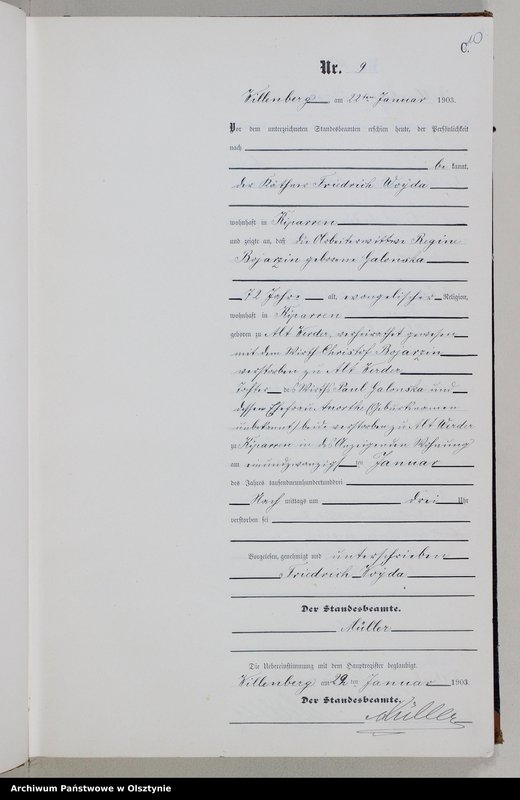 C. 10
Nr. 9
Willenberg am 22ten Januar 1903.
Vor dem unterzeichneten Standesbeamten erschien heute, der Persönlichkeit
nach
be kannt,
der Käthner Friedrich Woyda
wohnhaft in Kiparren
und zeigte an, daß die Arbeiterwittwe Regine
Bojarzin geborene Galonska
72 Jahre alt, evangelischer Religion,
wohnhaft in Kiparren
geboren zu Alt Werder, verheirathet gewesen
mit dem Wirth Christof Bojarzin
verstorben zu Alt Werder
Tochter des Wirths Paul Galonska und
dessen Ehefrau Anortha (Geburtsnamen
unbekannt) beide verstorben zu Alt Werder
zu Kiparren in des Anzeigenden Wohnung
am einundzwanzigsten ten Januar
des Jahres tausendneunhundertunddrei
Nach mittags um drei Uhr
verstorben sei
Vorgelesen, genehmigt und unterschrieben
Friedrich Woyda
Der Standesbeamte.
Müller
Die Uebereinstimmung mit dem Hauptregister beglaubigt.
Willenberg am 22 ten Januar 1903.
Der Standesbeamte.
Müller
Archiwum Państwowe w Olsztynie